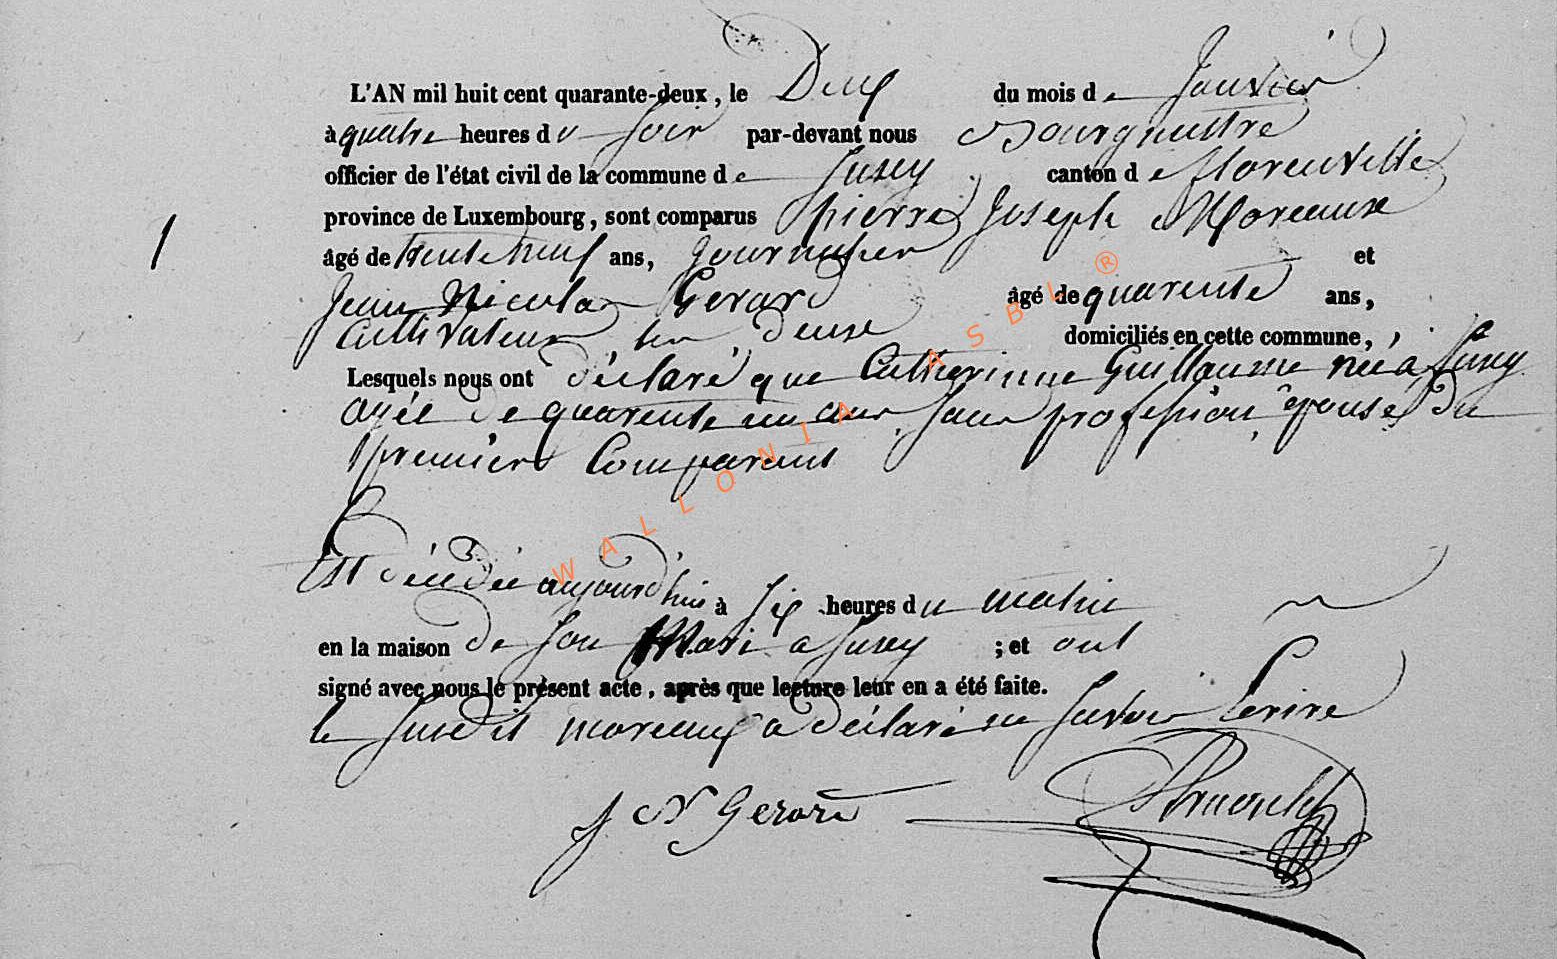 L'AN mil huit cent quarante-deux, le Deux du mois de Janvier
à quatre heures du Soir par-devant nous Bourgmestre
officier de l'état civil de la commune de Jusey canton de florenville
province de Luxembourg, sont comparus pierre Joseph Moreaux
1
âgé de trente neuf ans, Journalier et
Jean Nicolas Gerard âgé de quarente ans,
Cultivateur les deux domiciliés en cette commune,
Lesquels nous ont déclaré que Catherinne Guillaume née a Jusey
agée de quarente un ans, sans profession, épouse du
premier Comparant
Est décédée aujourd'hui à six heures du matin
en la maison de son Mari a Jusey ; et ont
signé avec nous le présent acte, après que lecture leur en a été faite.
le susdit moreaux a déclaré ne savoir Ecrire
J N Gerard
WALLONIA ASBL ®